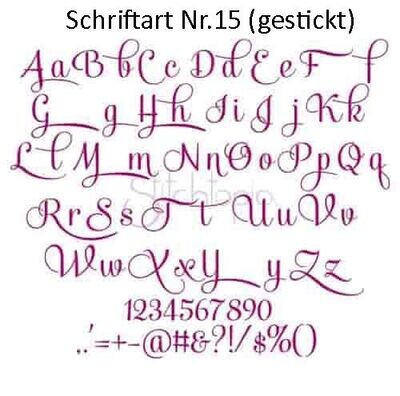 Schriftart Nr.15 (gestickt)
AaBbCcDdEeFf
GgHhIiJjKk
LlMmNnOoPpQq
RrSsTtUuVv
WwXxYyZz
1234567890
.,'=+-@#&?!/$%()
Stitchtopia